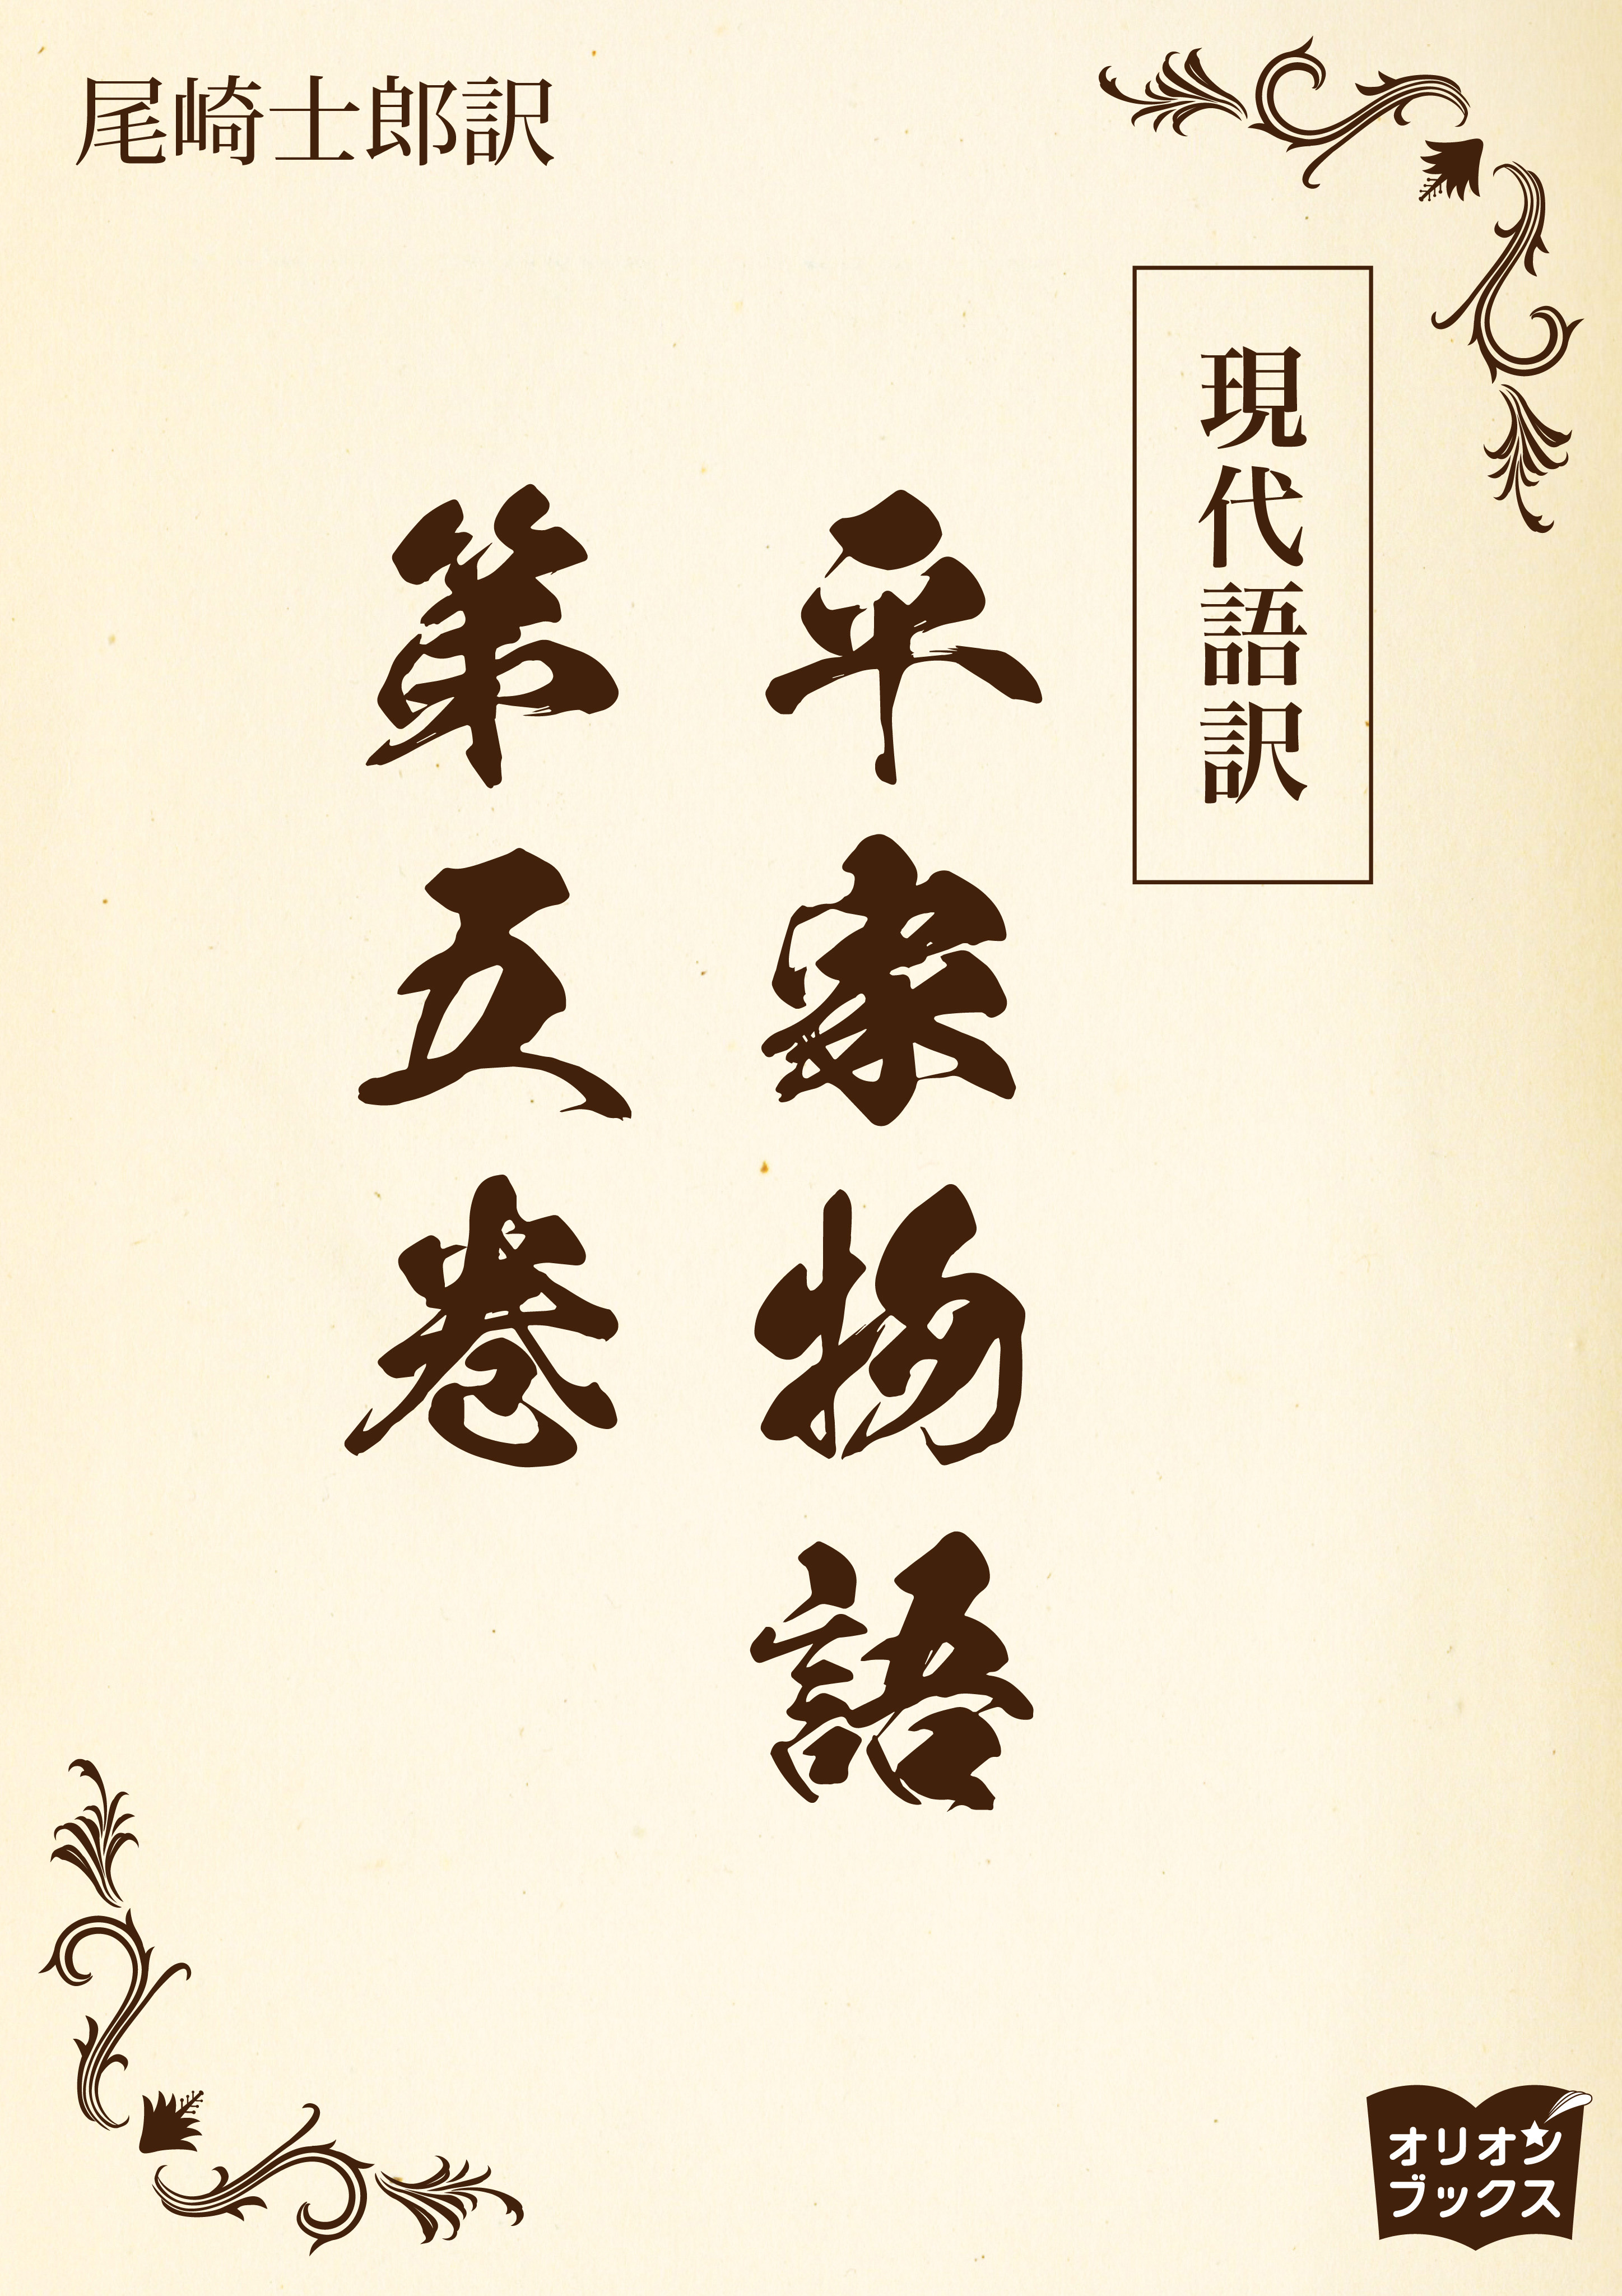 尾崎士郎訳
現代語訳
平家物語
第五巻
オリオン
ブックス